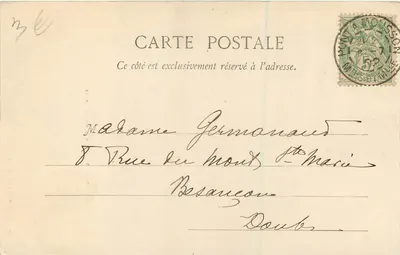 3 €
CARTE POSTALE
Ce côté est exclusivement réservé à l'adresse.
PONT-A-MOUSSON
Madame Germanaud
8 Rue du Mont Ste Marie
Besançon
Doubs